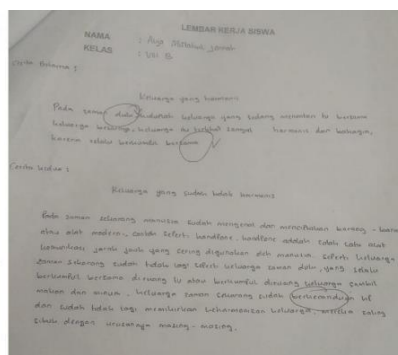 LEMBAR KERJA SISWA
NAMA :
KELAS : VIII B
Cerita Pertama :
Keluarga yang harmonis
Pada zaman dulu adalah keluarga yang sedang menonton tv bersama
keluarga besarnya, keluarga itu terlihat sangat harmonis dan bahagia,
karena selalu berkumpul bersama
Cerita kedua :
Keluarga yang sudah tidak harmonis
Pada zaman sekarang manusia sudah mengenal dan menciptakan barang - barang
atau alat modern, contoh seferti handfone, handfone adalah salah satu alat
komunikasi jarak jauh yang sering digunakan oleh manusia. seferti keluarga
zaman sekarang sudah tidak lagi seferti keluarga zaman dulu, yang selalu
berkumful bersama di ruang tv atau berkumful diruang keluarga sambil
makan dan minum, keluarga zaman sekarang sudah berkecanduan hf
dan sudah tidak lagi memikirkan keharmonisan keluarga, mereka saling
sibuk dengan urusannya masing - masing.